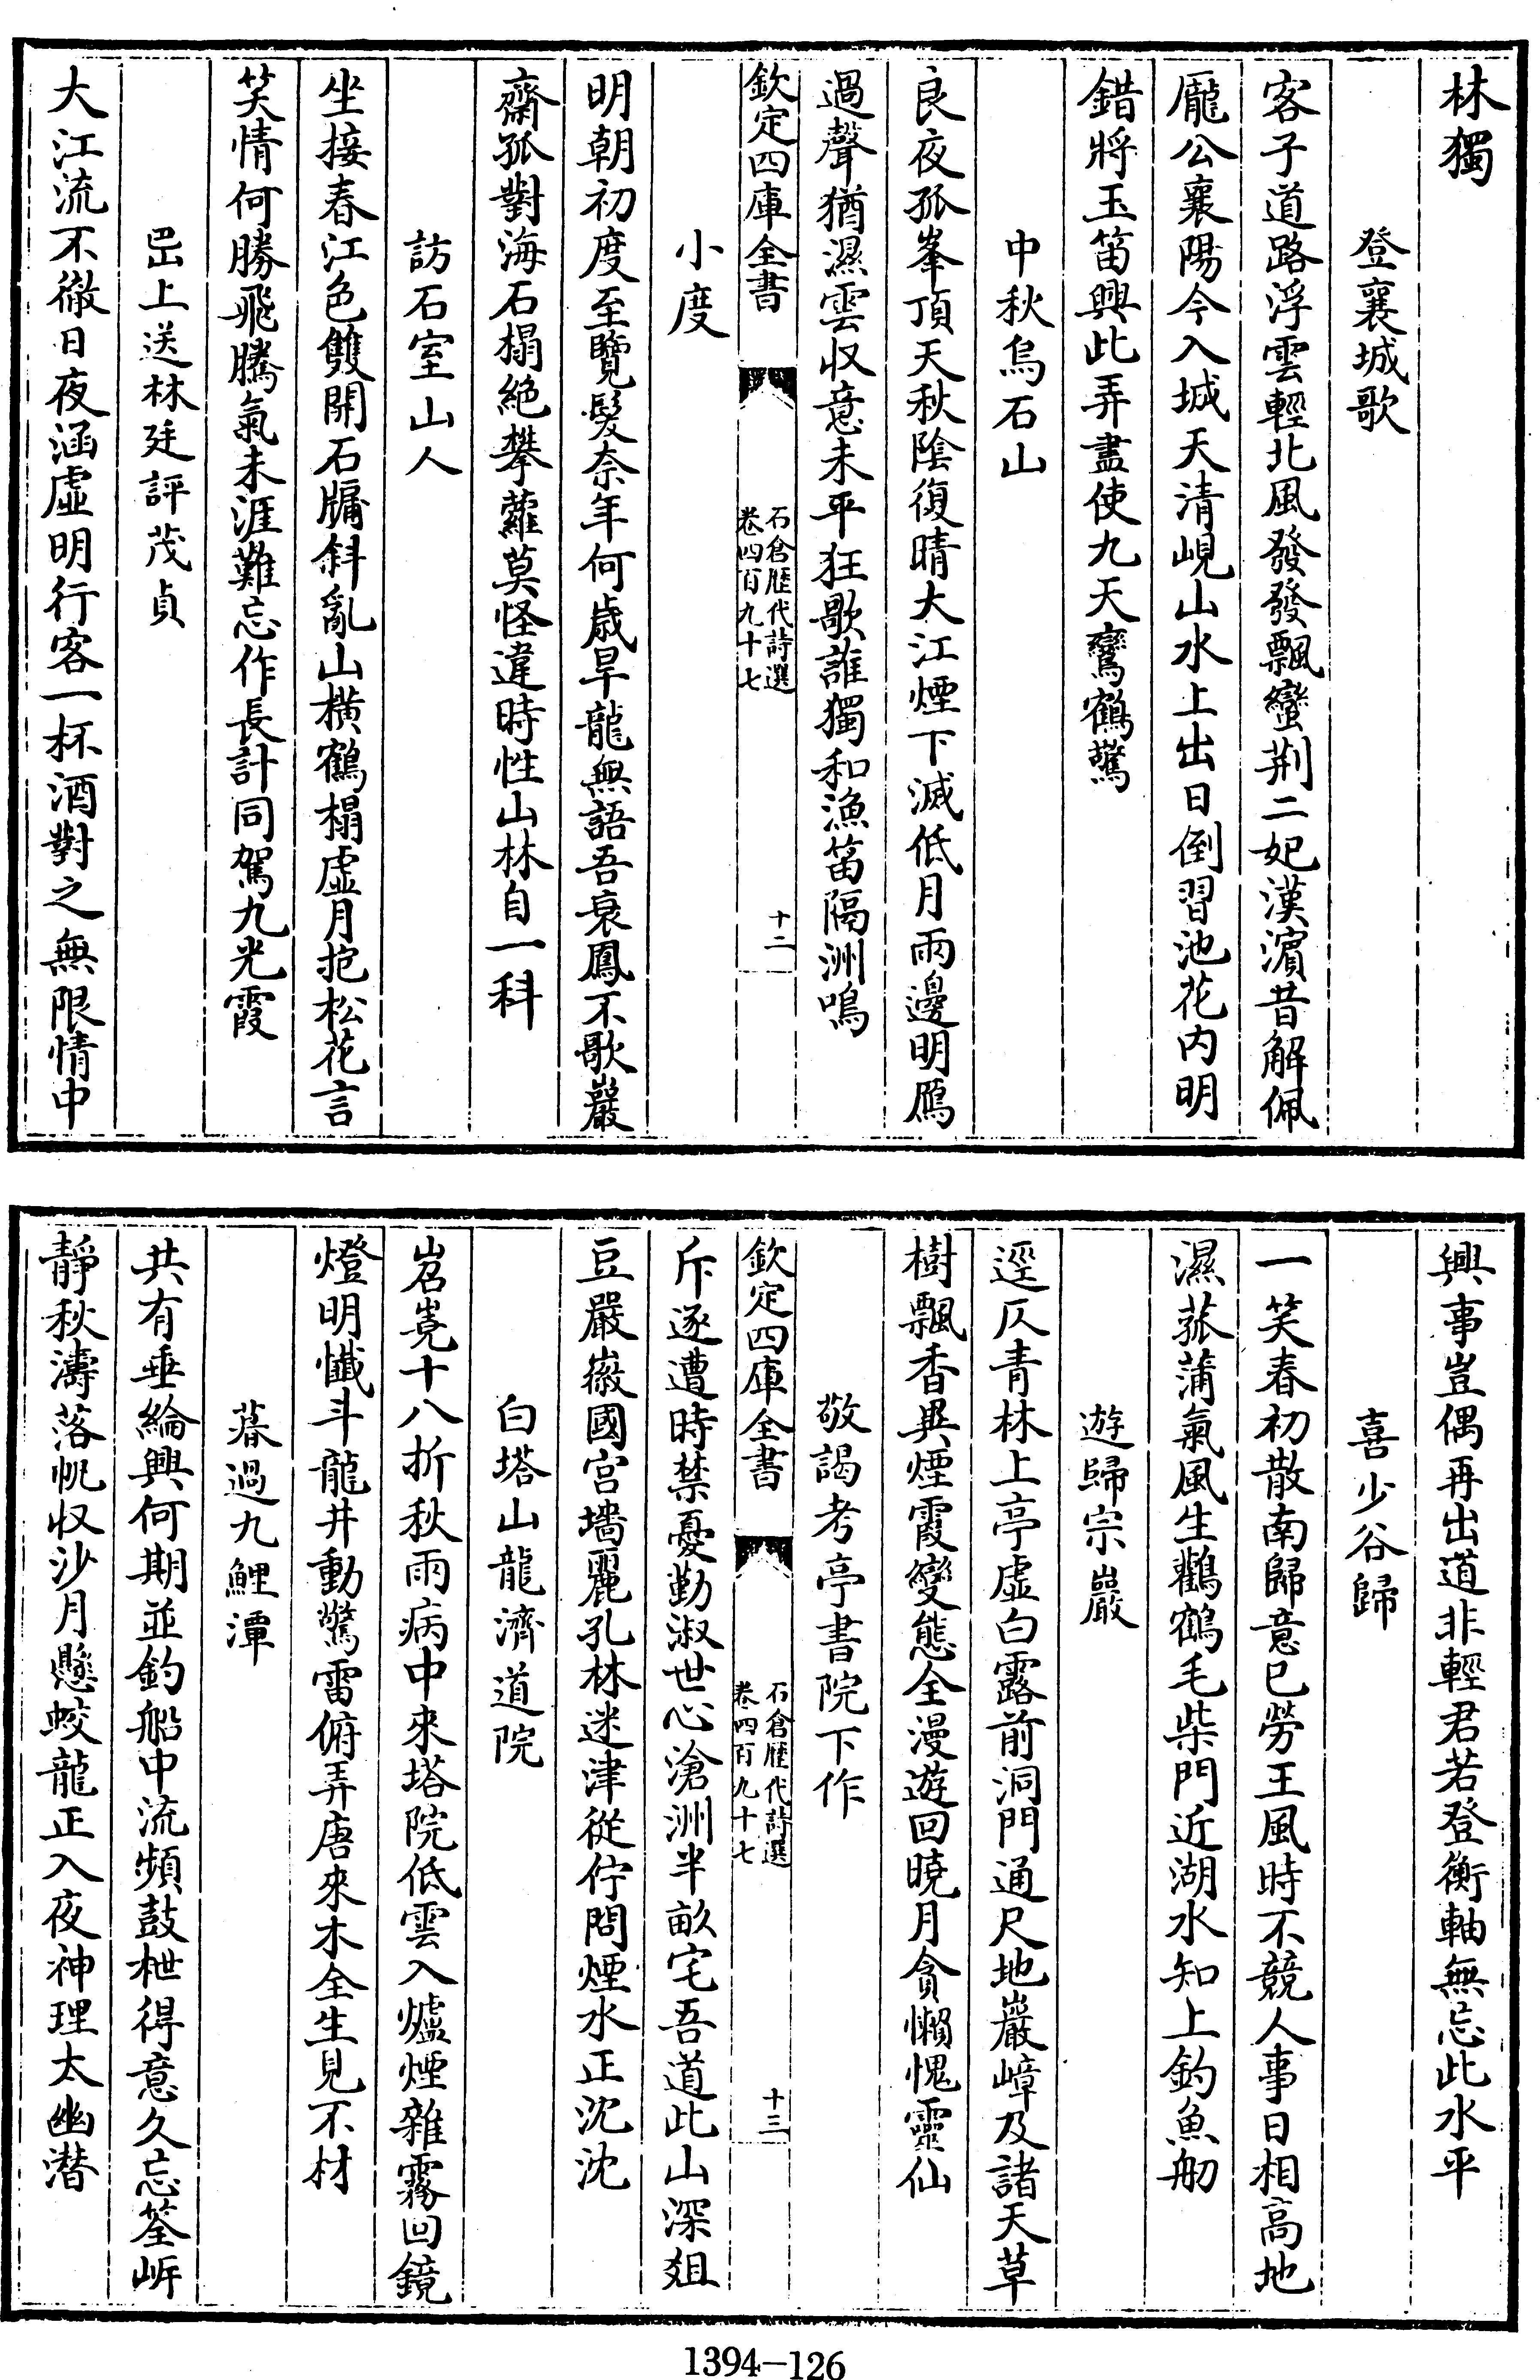 林獨
登襄城歌
客子道路浮雲輕北風發發飄蠻荆二妃漢濵昔解佩
龐公襄陽今入城天清峴山水上出日倒習池花内明
錯將玉笛興此弄盡使九天鸞鶴驚
中秋烏石山
良夜孤峯頂天秋陰復晴大江煙下滅低月雨邊明鴈
過聲猶濕雲収意未平狂歌誰獨和漁笛隔洲鳴
欽定四庫全書
石倉歴代詩選
卷四百九十七
十二
小度
明朝初度至覽髮奈年何歳旱龍無語吾衰鳳不歌巖
齋孤對海石榻絶攀蘿莫怪違時性山林自一科
訪石室山人
坐接春江色雙開石牖斜亂山横鶴榻虚月抱松花言
笑情何勝飛騰氣未涯難忘作長計同駕九光霞
岊上送林廷評茂貞
大江流不徹日夜涵虛明行客一杯酒對之無限情中
興事豈偶再出道非輕君若登衡軸無忘此水平
喜少谷歸
一笑春初散南歸意已勞王風時不競人事日相高地
濕菰蒲氣風生鸛鶴毛柴門近湖水知上釣魚舠
遊歸宗巖
逕仄青林上亭虚白露前洞門通尺地巖嶂及諸天草
樹飄香異煙霞變態全漫遊回曉月貪懶愧靈仙
敬謁考亭書院下作
欽定四庫全書
石倉歴代詩選
卷四百九十七
十三
斥逐遭時禁憂勤淑世心滄洲半畝宅吾道此山深俎
豆嚴徽國宫墻麗孔林迷津從佇問煙水正沈沈
白塔山龍濟道院
岧嶤十八折秋雨病中來塔院低雲入爐煙雜霧回鏡
燈明懺斗龍井動驚雷俯弄唐來木全生見不材
暮過九鯉潭
共有垂綸興何期並釣船中流頻鼓枻得意久忘筌㟁
靜秋濤落帆収沙月懸蛟龍正入夜神理太幽潛
1394-126